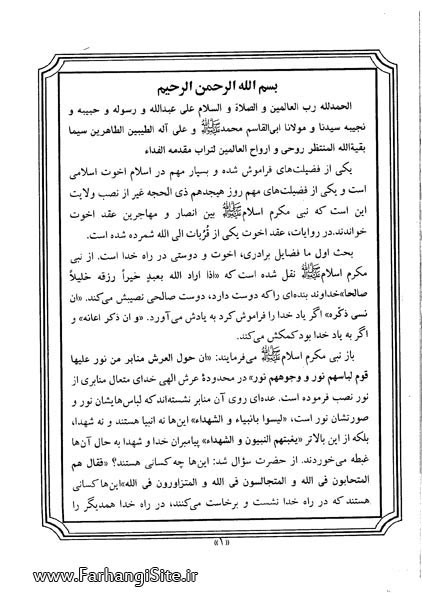 بسم الله الرحمن الرحیم
الحمدلله رب العالمین و الصلاة و السلام علی عبدالله و رسوله و حبیبه و
نجیبه سیدنا و مولانا ابی‌القاسم محمدﷺ و علی آله الطیبین الطاهرین سیما
بقیةالله المنتظر روحی و ارواح العالمین لتراب مقدمه الفداء
یکی از فضیلت‌های فراموش شده و بسیار مهم در اسلام اخوت اسلامی
است و یکی از فضیلت‌های مهم روز هیجدهم ذی الحجه غیر از نصب ولایت
این است که نبی مکرم اسلامﷺ بین انصار و مهاجرین عقد اخوت
خواندند.در روایات، عقد اخوت یکی از قُرُبات الی الله شمرده شده است.
بحث اول ما فضایل برادری، اخوت و دوستی در راه خدا است. از نبی
مکرم اسلامﷺ نقل شده است که «اذا اراد الله بعبدٍ خیراً رزقه خلیلاً
صالحا»خداوند بنده‌ای را که دوست دارد، دوست صالحی نصیبش می‌کند. «ان
نسی ذکّره» اگر یاد خدا را فراموش کرد به یادش می‌آورد. «و ان ذکر اعانه» و
اگر به یاد خدا بود کمکش می‌کند.
باز نبی مکرم اسلامﷺ می‌فرمایند: «ان حول العرش منابر من نور علیها
قوم لباسهم نور و وجوههم نور» در محدودهٔ عرش الهی خدای متعال منابری از
نور نصب فرموده است. عده‌ای روی آن منابر نشسته‌اند که لباس‌هایشان نور و
صورتشان نور است، «لیسوا بانبیاء و الشهداء» این‌ها نه انبیا هستند و نه شهدا،
بلکه از این بالاتر «یغبتهم النبیون و الشهداء» پیامبران خدا و شهدا به حال آن‌ها
غبطه می‌خوردند. از حضرت سؤال شد: این‌ها چه کسانی هستند؟ «فقال هم
المتحابون فی الله و المتجالسون فی الله و المتزاورون فی الله»این‌ها کسانی
هستند که در راه خدا نشست و برخاست می‌کنند، در راه خدا همدیگر را
«۱»
www.FarhangiSite.ir